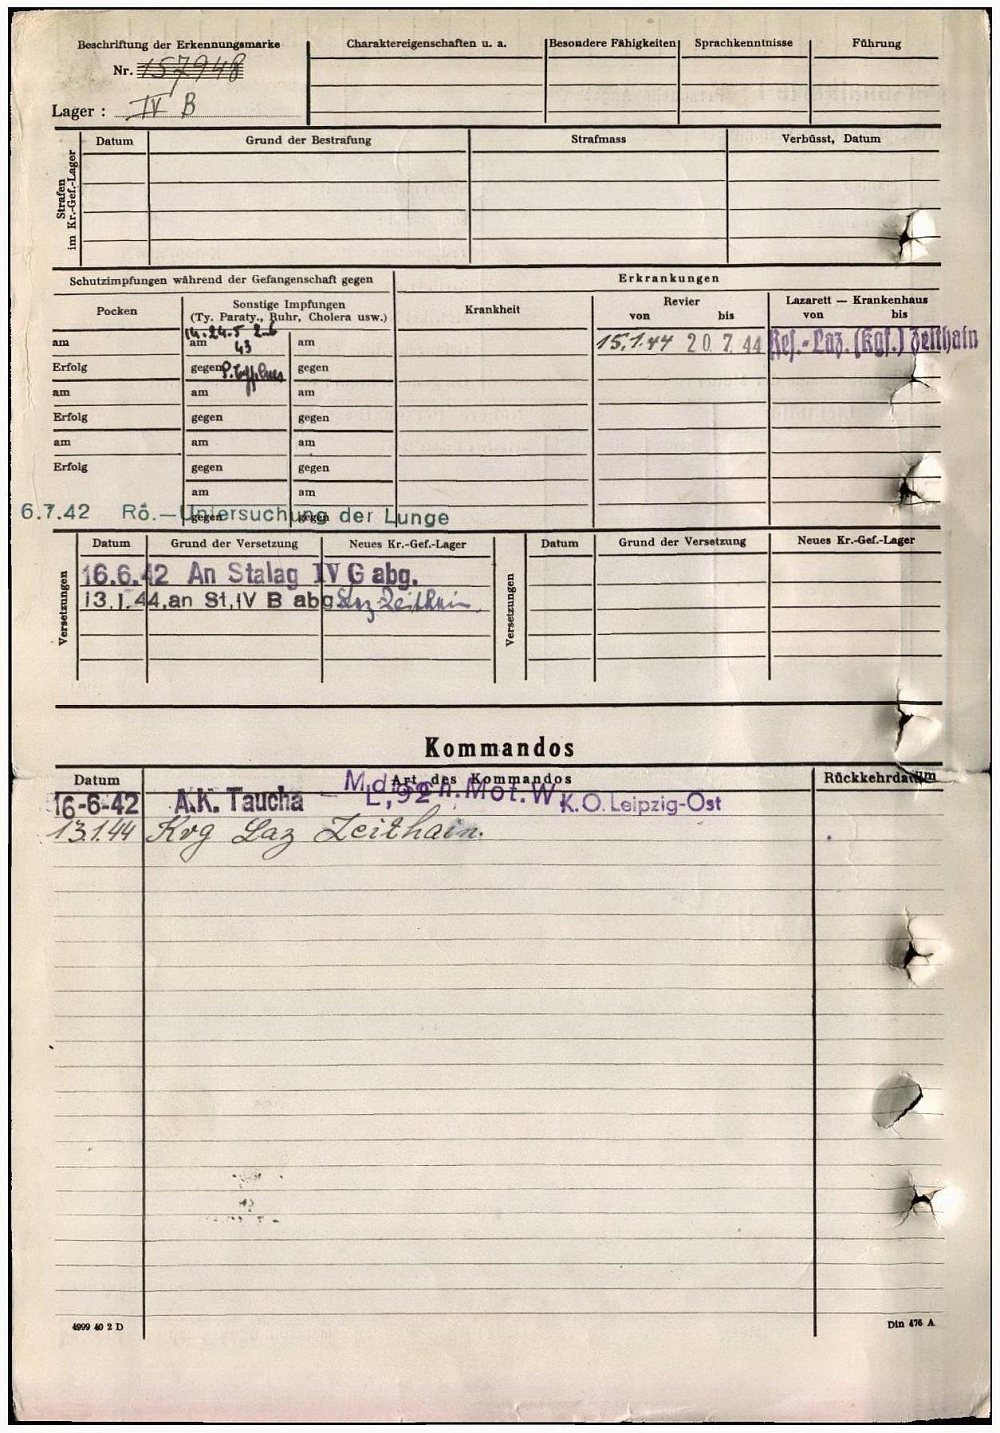 Beschriftung der Erkennungsmarke
Nr. 157948
Lager : IV B
Charaktereigenschaften u. a.
Besondere Fähigkeiten
Sprachkenntnisse
Führung
Strafen im Kr.-Gef.-Lager
Datum
Grund der Bestrafung
Strafmass
Verbüsst, Datum
Schutzimpfungen während der Gefangenschaft gegen
Erkrankungen
Pocken
Sonstige Impfungen
(Ty. Paraty., Ruhr, Cholera usw.)
Krankheit
Revier
von bis
Lazarett — Krankenhaus
von bis
14.-24.5 2.6
am am 43 am
15.1.44 20 7. 44 Res.-Laz. (Kgf.) Zeithain
Erfolg gegen gegen
am am am
Erfolg gegen gegen
am am am
Erfolg gegen gegen
am am
gegen gegen
6.7.42 Rö.—Untersuchung der Lunge
Versetzungen
Datum
Grund der Versetzung
Neues Kr.-Gef.-Lager
16.6.42 An Stalag IV G abg.
13.1.44,an St.IV B abg Laz Zeithain
Versetzungen
Datum
Grund der Versetzung
Neues Kr.-Gef.-Lager
Kommandos
Datum
Art des Kommandos
Rückkehrdatum
16-6-42 A.K. Taucha — L,92 Mot.W K.O.Leipzig-Ost
13.1.44 Krg Laz Zeithain.
4999 40 2 D
Din 476 A